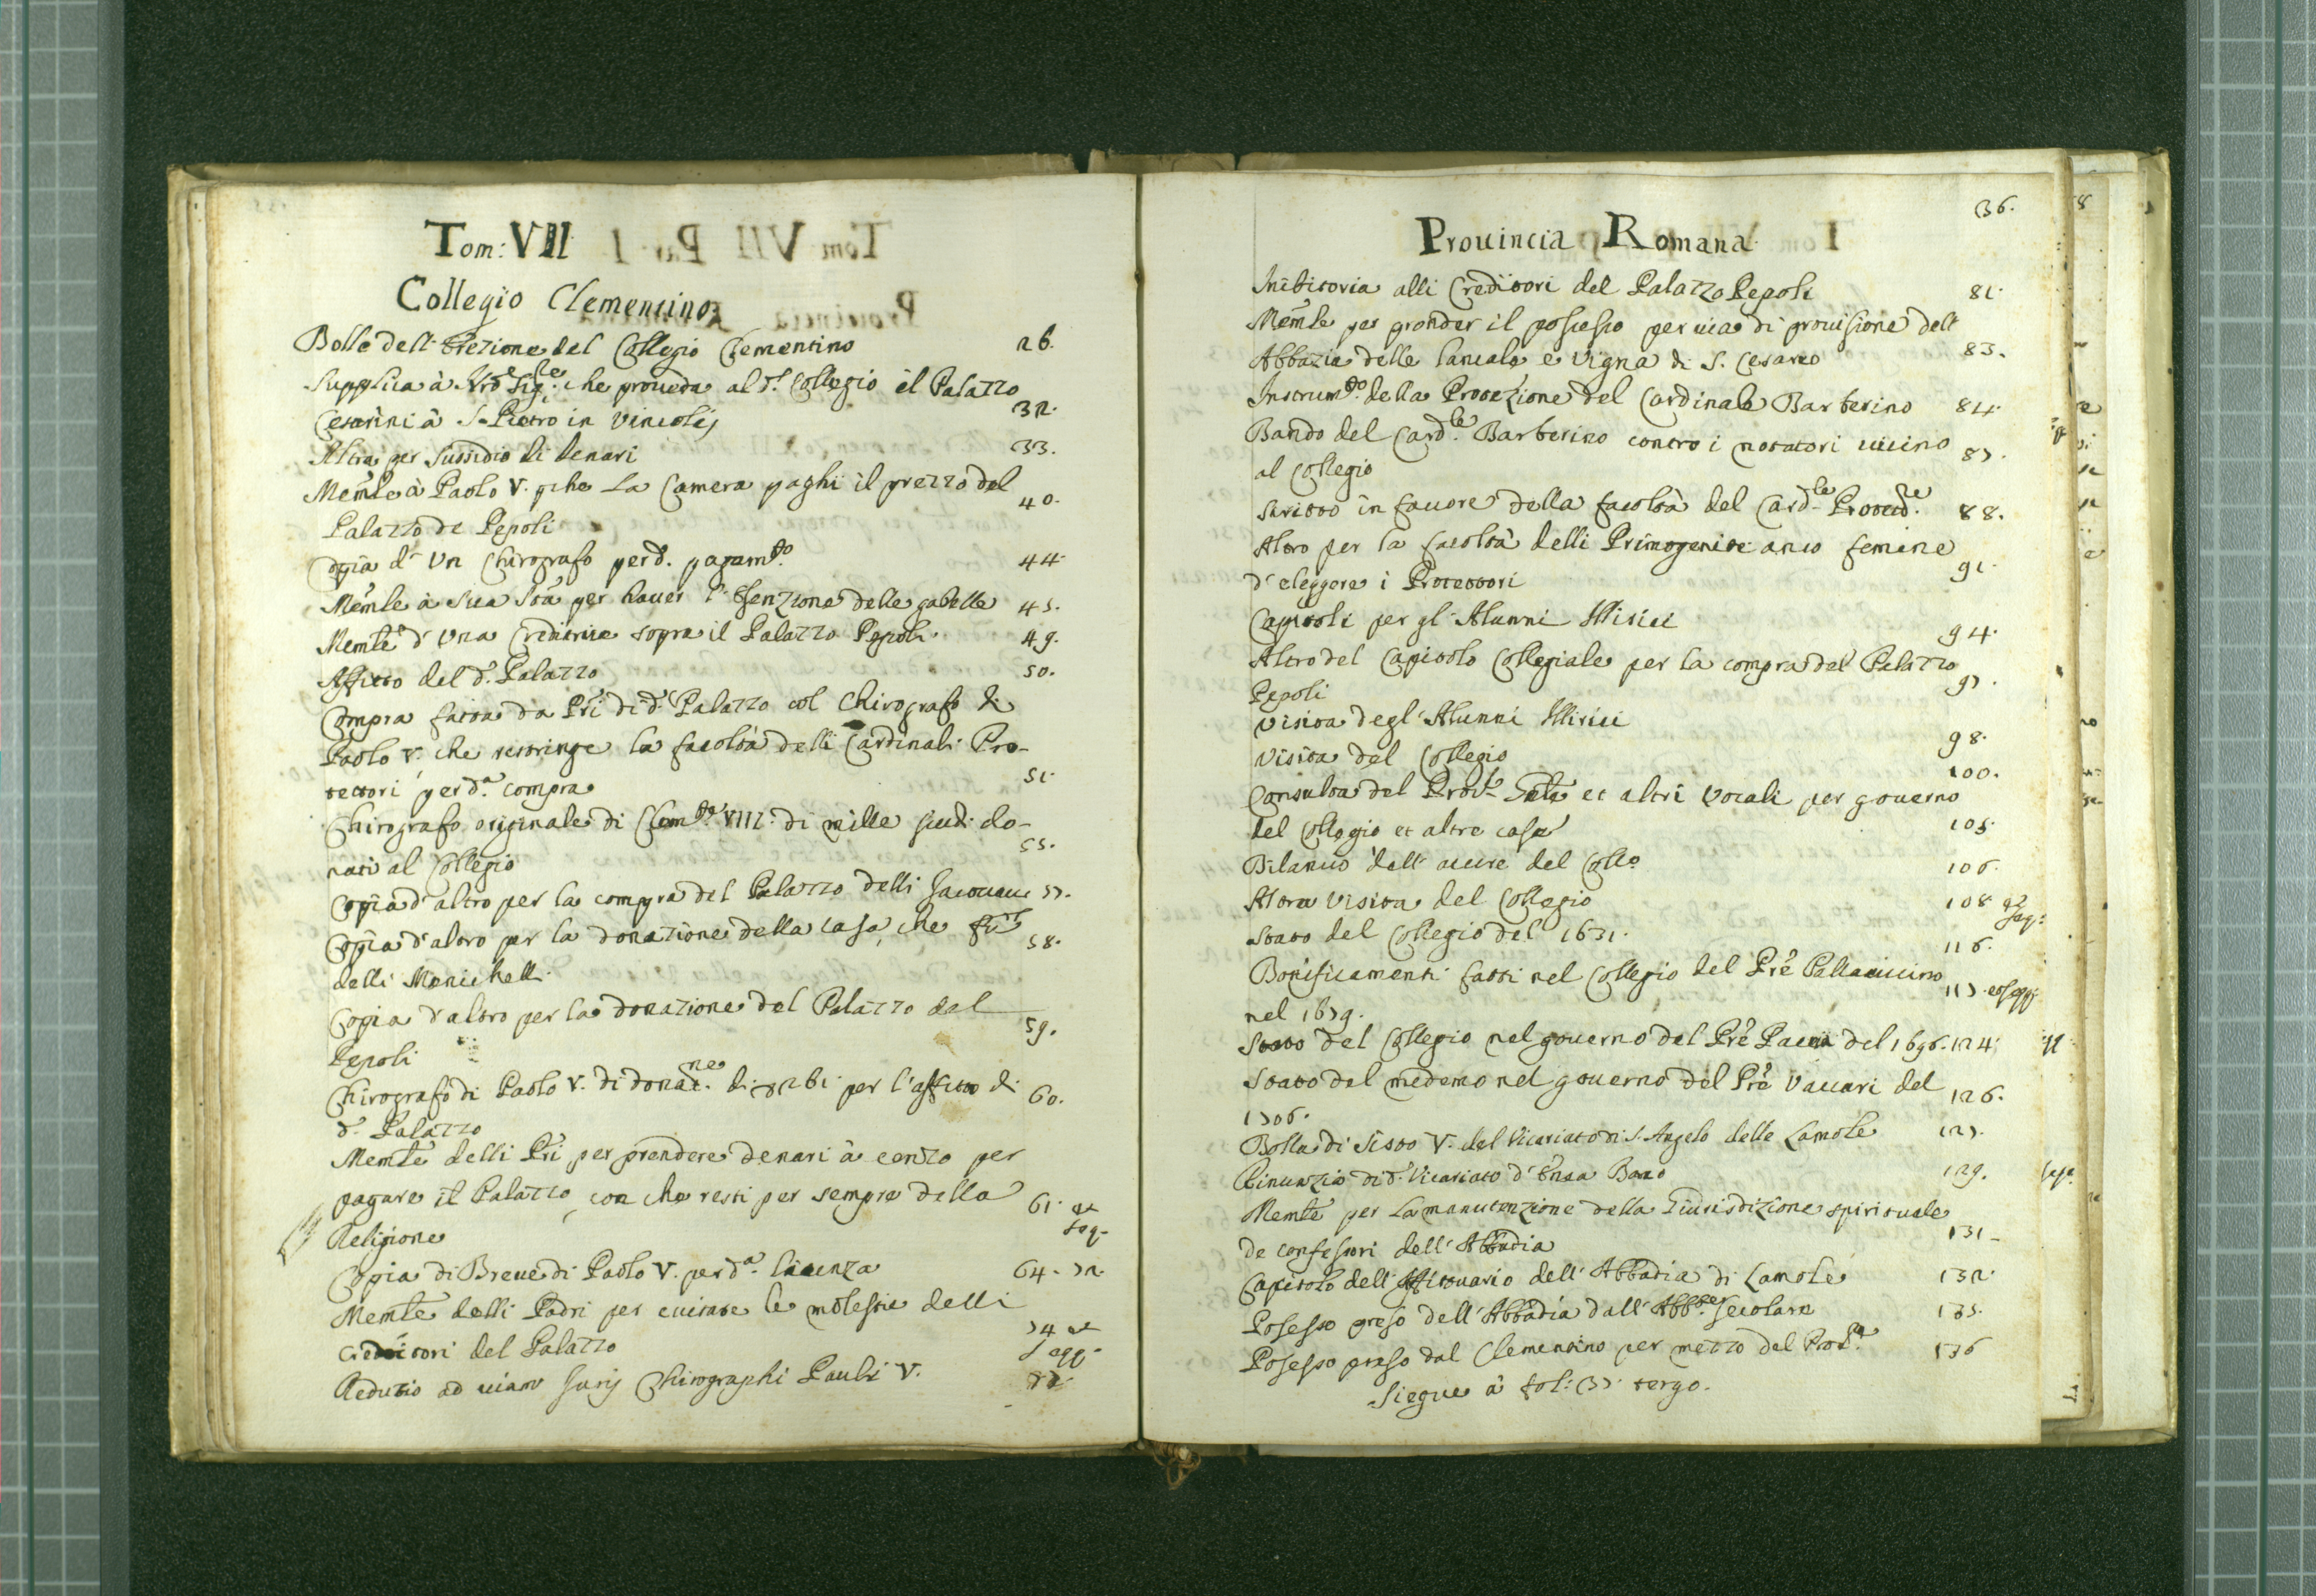 Tom: VII
Collegio Clementino
Bolle dell' Erezione del Collegio Clementino 26.
Supplica à che proueda al d.º Collegio il Palazzo
Cesarini à S. Pietro in Vincolis 32.
Altra per sussidio di denari 33.
Memle à Paolo V. pche La Camera paghi il prezzo del
Palazzo de Pepoli 40.
Copia d' Un Chirografo per d. pagamto. 44
Memle à Sua Stà per hauer l' Esenzione delle gabelle 45.
Memle d' Una Creditrice sopra il Palazzo Pepoli 49.
Affitto del d. Palazzo 50.
Compra fatta da Pri di d. Palazzo col Chirografo di
Paolo V. che restringe la facoltà delli Cardinali Pro-
tettori per da. compra 51.
Chirografo originale di Clemte. VIII. di mille scudi do-
nati al Collegio 55.
Copia d' altro per la compra del Palazzo delli 57.
Copia d' altro per la donazione della casa, che fù
delli Manichelli 58.
Copia d' altro per la donazione del Palazzo del
Pepoli 59.
Chirografo di Paolo V. di donane. di per l'affitto di
d. Palazzo 60.
Memle delli Pri per prendere denari à cenzo per
pagare il Palazzo, con che resti per sempre della
Religione 61. et seq.
Copia di Breue di Paolo V. per da. licenza 64. 72.
Memle delli Padri per euitare le molestie delli
creditori del Palazzo 74 et segg.
Reductio ad uiam Juris Chirographi Pauli V. 77.
Prouincia Romana
136.
Inibitoria alli Creditori del Palazzo Pepoli 81.
Memle per prender il possesso per uia di prouisione dell'
Abbazia delle e Vigna di S. Cesareo 83.
Instrumto. della Protezione del Cardinale Barberino 84.
Bando del Cardle. Barberino contro i notatori uicino
al Collegio 87.
Scritto in fauore della facoltà del Cardle. 88.
Altro per la facoltà delli Primogenite anco femine
d' eleggere i Protettori 91.
Capitoli per gl' Alunni Illirici 94.
Altro del Capitolo Collegiale per la compra del Palazzo
Pepoli 97.
Visita degl' Alunni Illirici 98.
Visita del Collegio 100.
Consulta del Prole. et altri Vocali per gouerno
del Collegio et altre case 105.
Bilancio dell' auere del Collo. 106.
Altra Visita del Collegio 108 et seq:
Stato del Collegio del 1631. 116.
Bonificamenti fatti nel Collegio del Pre Pallauicino
nel 1679. 117. et segg.
Stato del Collegio nel gouerno del Pre del 1696. 124.
Stato del medemo nel gouerno del Pre Vaccari del
1706. 126.
Bolla di Sisto V. del Vicariato di S. Angelo delle Lamole 127.
Rinunzia di d. Vicariato d' 129.
Memle per la manutenzione della Giurisdizione spirituale
de confessori dell' Abbadia 131.
Capitolo dell' Affittuario dell' Abbadia di Lamole 132.
Possesso preso dell' Abbadia dall' Abbte. Secolare 135.
Possesso preso dal Clementino per mezzo del Prole. 136
Siegue à fol: 137. tergo.